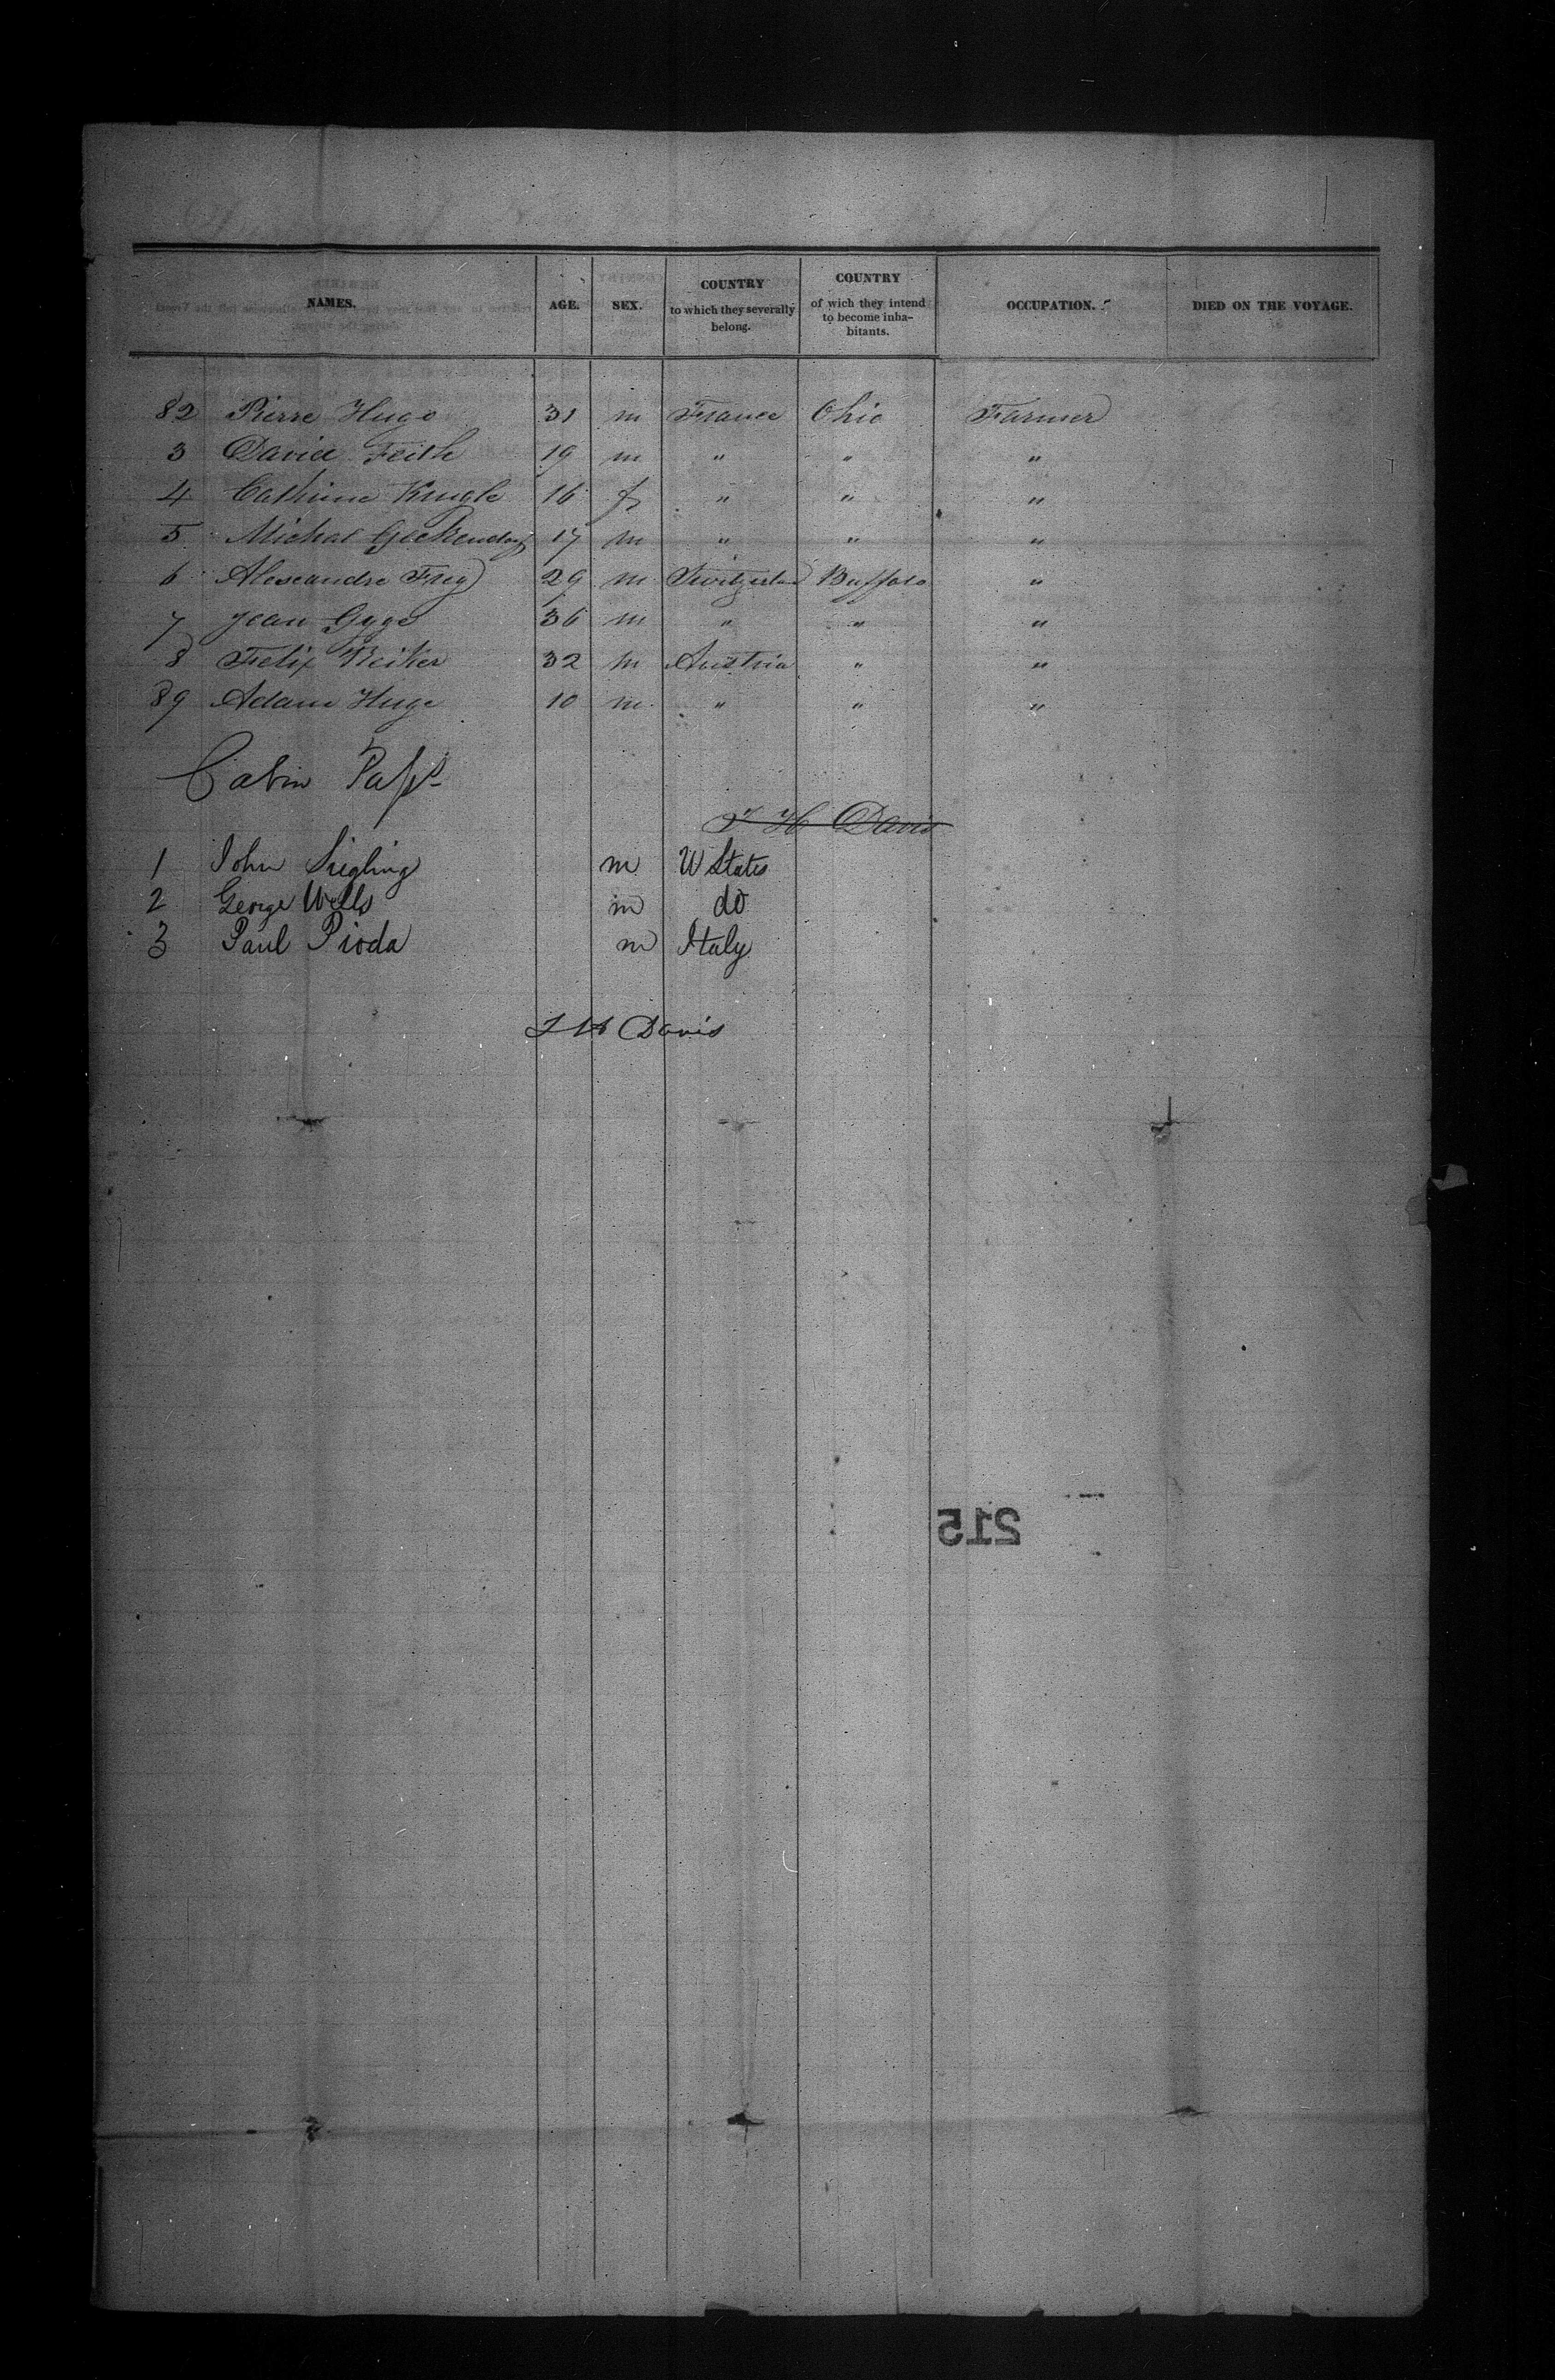 NAMES. AGE. SEX. COUNTRY to which they severally belong. COUNTRY of wich they intend to become inhabitants. OCCUPATION. DIED ON THE VOYAGE.
82 Pierre Hugo 31 m France Ohio Farmer
3 David Feith 19 m " " "
4 Cathrine Kugle 16 f " " "
5 Michal 17 m " " "
6 Alexandre Frey 29 m Switzerland Buffalo "
7 Jean Gyge 36 m " " "
8 Felix Reiker 32 m Austria " "
89 Adam Huge 10 m " " "
Cabin Pass
T H Davis
1 John Siegling m U States
2 George Wells m do
3 Paul Pioda m Italy
T H Davis
215